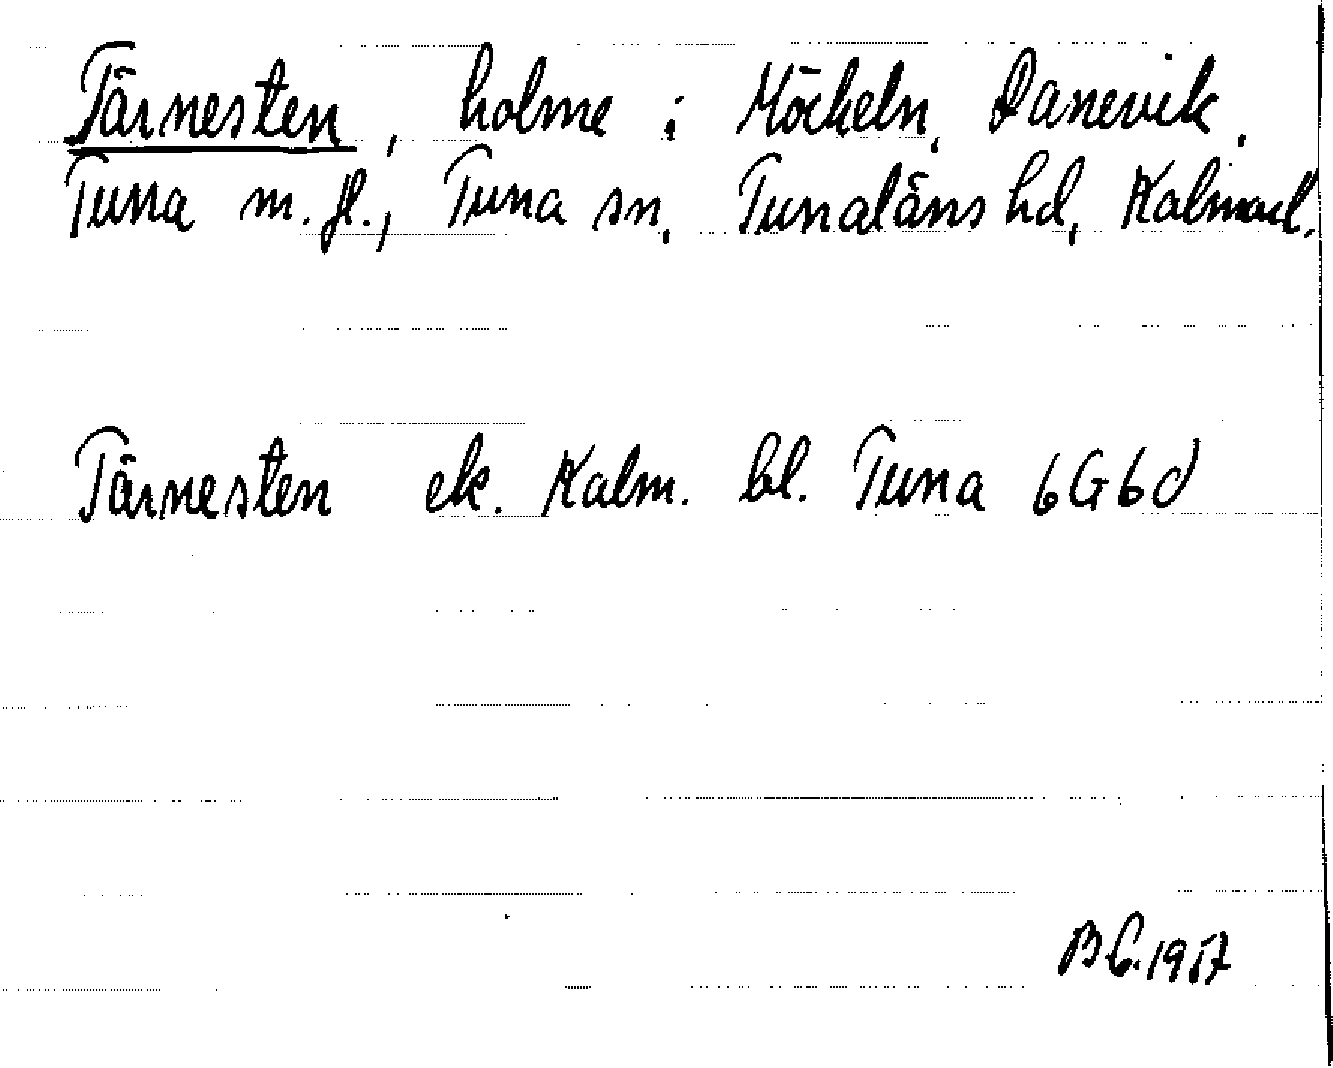 Tärnesten, holme i Möckeln, Danevik,
Tuna m.fl., Tuna sn, Tunaläns hd, Kalmar l.
Tärnesten ek. Kalm. bl. Tuna 6G6d
B G. 1957